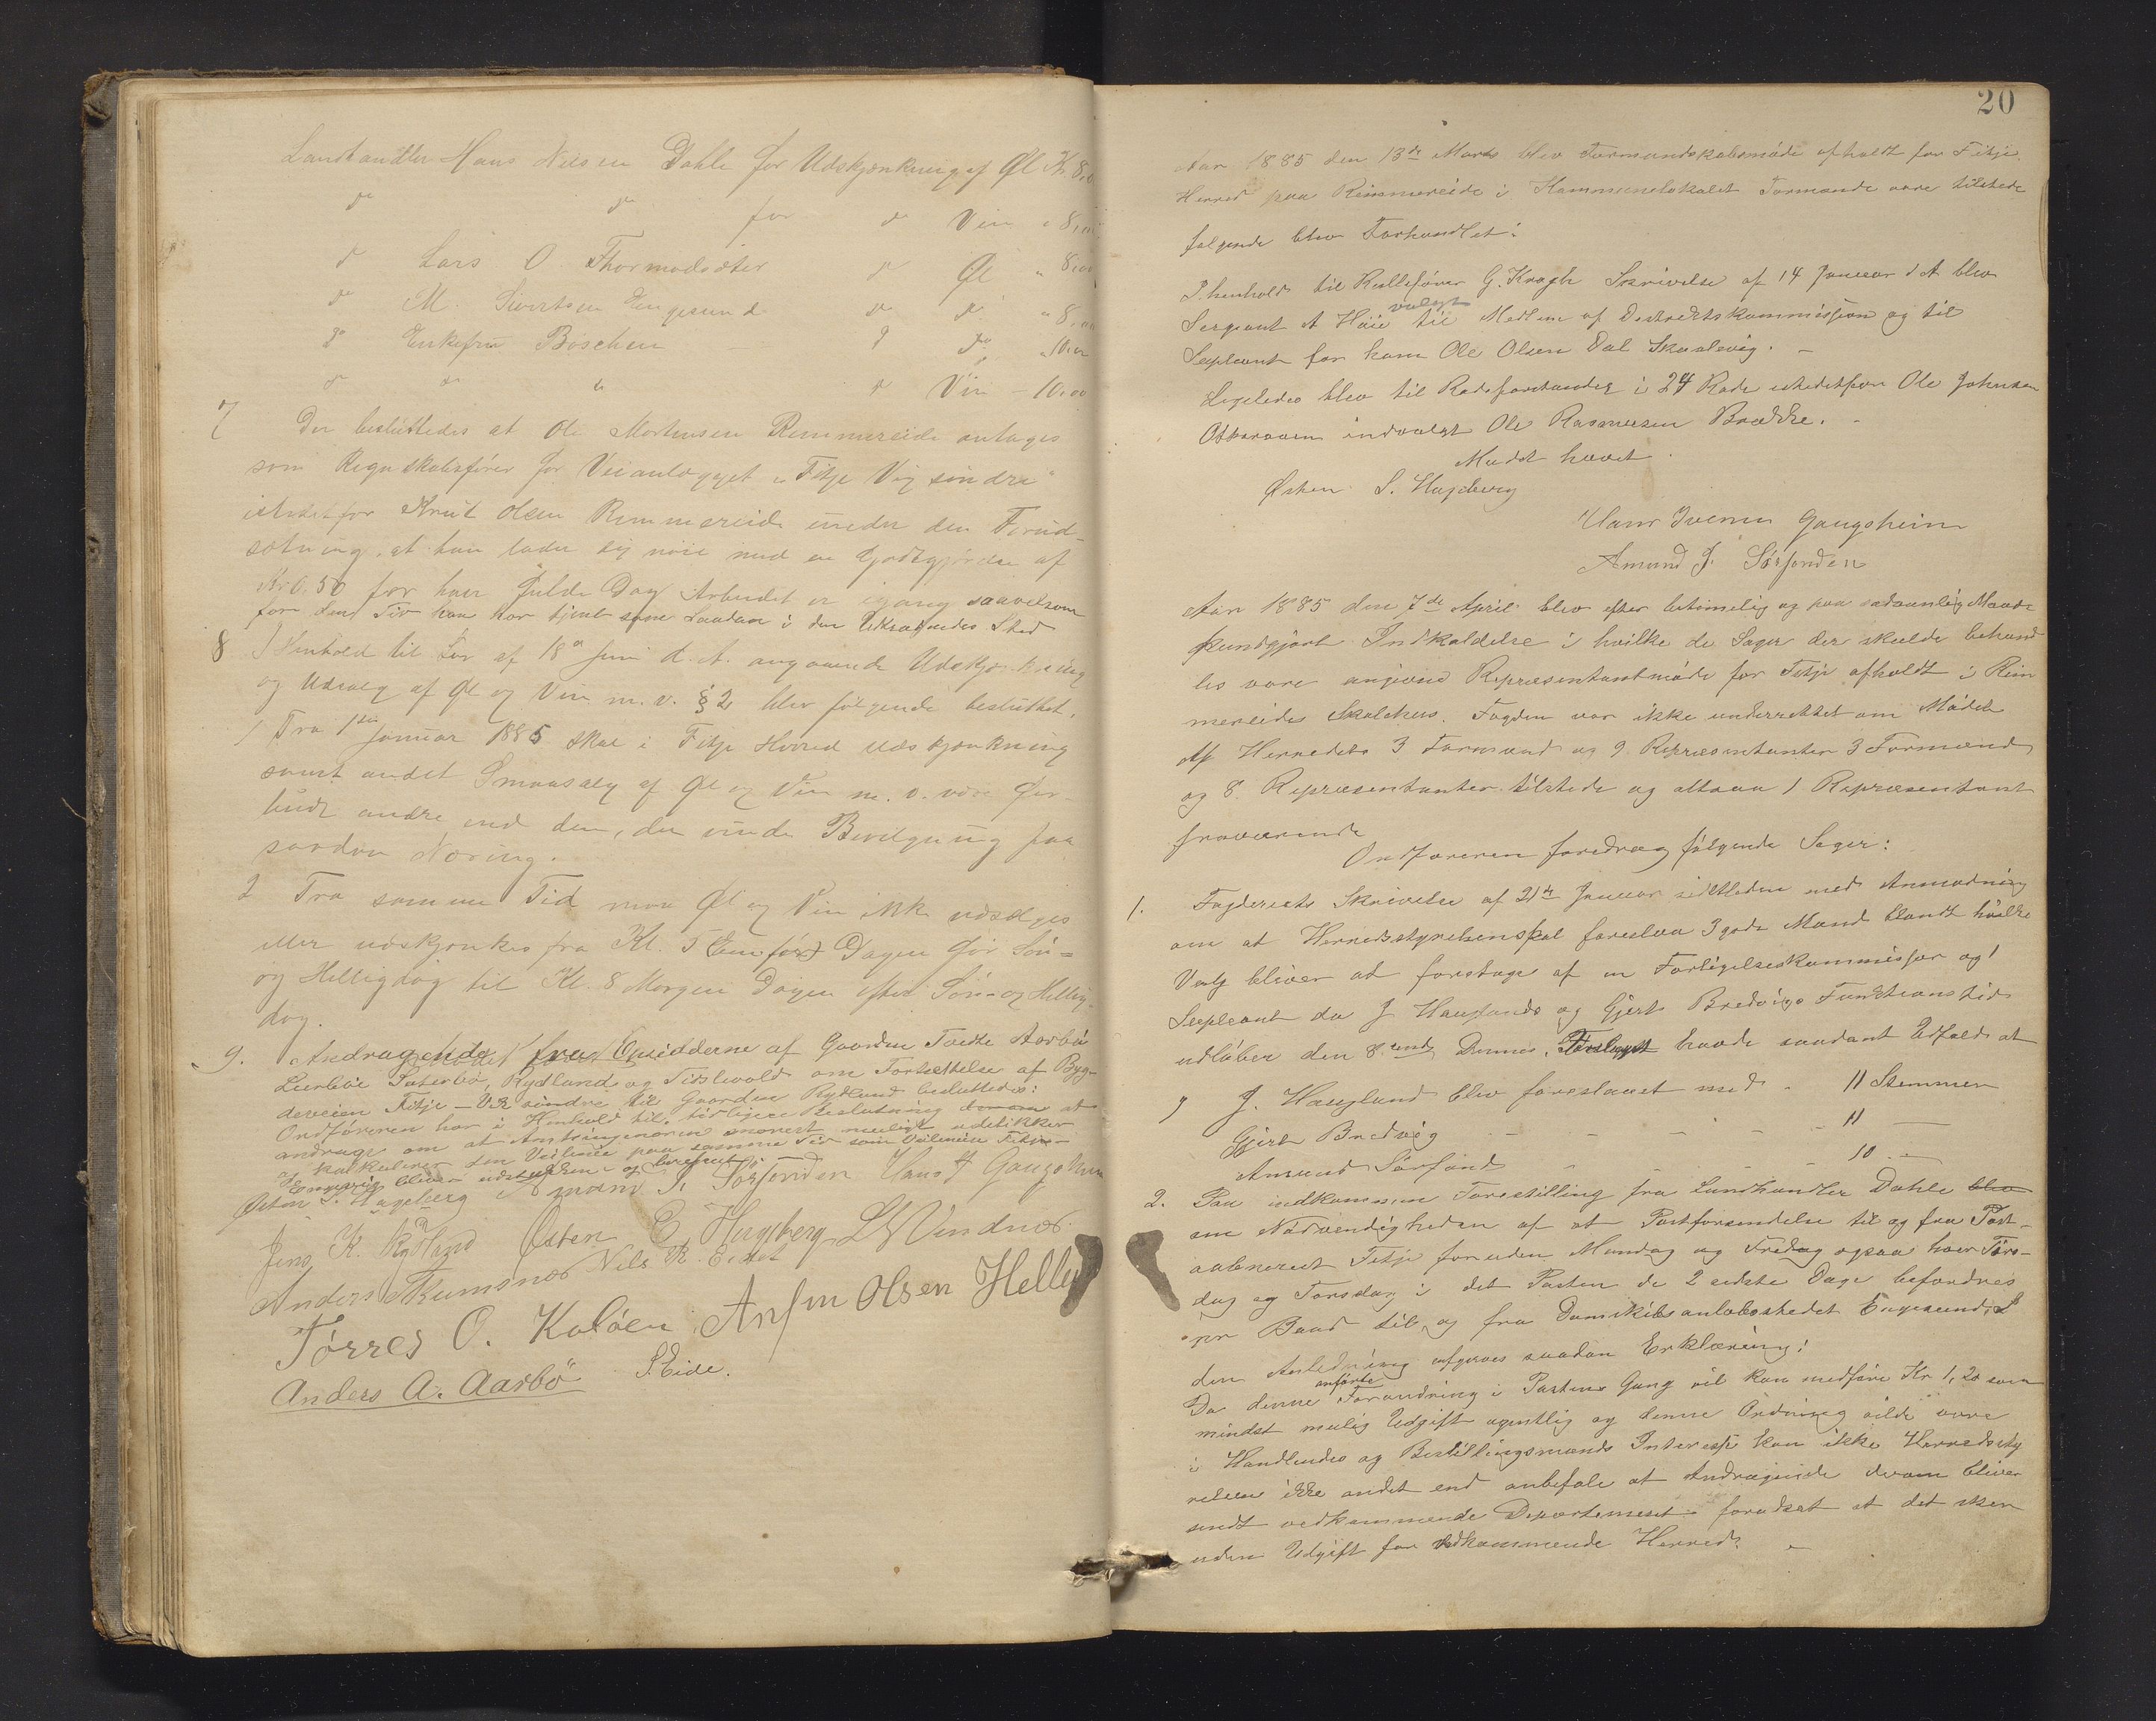 Landhandler Hans Nilsen Dahle for Udskjænkning af Øl Kr. 8,0
do do for do Vin " 8,00
do Lars O. Thormodsæter do Øl " 8,00
do M. Sivertsen Engesund do do " 8,00
do Enkefru Böschen do do " 10,00
do do " do Vin - 10,00
7 Der besluttedes at Ole Mortensen Rimmereide antages
som Regnskabsfører for Veianlægget "Fitje Vig søndre"
istedetfor Knut Olsen Rimmereide under den Forud-
sætning, at han lader sig nøie med en Godtgjørelse af
Kr 0,50 for hver fulde Dag Arbeidet er igang saavelsom
for den Tid han har tjent som Saadan i den Udtrædendes Sted
8 I Henhold til Lov af 18de Juni d. A. angaaende Udskjænkning
og Udsalg af Øl og Vin m. v. § 2 blev følgende besluttet,
1 Fra 1ste Januar 1885 skal i Fitje Herred udskjænkning
samt andet Smaasalg af Øl og Vin m. v. være For-
budt andre end dem, der vinde Bevilgning paa
saadan Næring.
2 Fra samme Tid maa Øl og Vin ikke udsælges
eller udskjænkes fra Kl. 5 Em før Dagen før Søn=
og Helligdag til Kl. 8 Morgen Dagen efter Søn- og Hellig-
dag.
9. Andragende fra Opsidderne af Gaarden Tvedte Aarbø
Leirbøe Sæterbø, Rydland og Tidslevold om Fortsættelse af Byg-
deveien Fitje - Vik søndre til Gaarden Rydland besluttedes:
Ordføreren har i Henhold til tidligere Beslutning derom at
andrage om at Amtsingeniøren snarest muligt udstikker
og kalkulerer den Veilinie paa samme Tid som Veilinien Fitje-
Engevig bliver udstukken og beregnet.
Østen S. Hageberg Amund J. Sørfonden Hans I Gaugsheim
Jens K. Rydland Østen E. Hageberg L N Vindnæs
Anders Skumsnæs Nils R. Eidet
Tørres O. Kaløen Anfin Olsen Helle
Anders A. Aarbø S. Eide.
20
Aar 1885 den 13de Marts blev Formandskabsmøde afholdt for Fitje
Herred paa Rimmereide i Kommunelokalet Formænde vare tilstede
følgende blev Forhandlet:
I henhold til Rullefører G. Kragh Skrivelse af 14 Januar d. A blev
valgt
Sergeant A Høie til Medlem af Destrektskommissjon og til
Supleant for ham Ole Olsen Dal Skaalevig. -
Ligeledes blev til Rodeforstander i 24 Rode istedetfor Ole Johnsen
Oskaraven indvalgt Ole Rasmussen Brække. -
Mødet hævet.
Østen S. Hageberg
Hans Iversen Gaugsheim
Amund J. Sørfonden
Aar 1885 den 7de April blev efter betimelig og paa sædvanlig Maade
kundgjort Indkaldelse i hvilke de Sager der skulde behand
les vare angivne Repræsentantmøde for Fitje afholdt i Rim
mereides Skolehus. Fogden var ikke underrettet om Mødet
Af Herredets 3 Formænd og 9 Repræsentanter 3 Formænd
og 8 Repræsentanter tilstede og altsaa 1 Repræsentant
fraværende
Ordføreren foredrog følgende Sager:
1. Fogderiets Skrivelse af 21de Januar sidstleden med Anmodning
om at Herredsstyrelsen skal foreslaa 3 gode Mænd blandt hvilke
Valg bliver at foretage af en Forligelseskommissær og 1
Supleant da J Hauglands og Gjert Bredvigs Funktionstid
udløber den 8. unds Dennes. Forslaget havde saadant Udfald at
J. Haugland blev foreslaaet med - 11 Stemmer
Gjert Bredvig - - - - 11 -
Amund Sørfond - - - - 10 -
2. Paa indkommen Forestilling fra Landhandler Dahle blev
om Nødvendigheden af at Postforsendelse til og fra Post-
aabneriet Fitje foruden Mandag og Fredag ogsaa hver Tirs-
dag og Torsdag i det Posten de 2 sidste Dage befordres
pr Baad til og fra Damskibsanløbsstedet Engesund, I
den Anledning afgives saadan Erklæring:
anførte
Da denne Forandring i Postens Gang vil kun medføre Kr 1,20 som
mindst mulig Udgift ugentlig og denne Ordning vilde være
i Handlendes og Bestillingsmænds Interesse kan ikke Herredssty
relsen ikke andet end anbefale at Andragende derom bliver
sendt vedkommende Departement forudsat at det sker
uden Udgift for vedkommende Herred. -